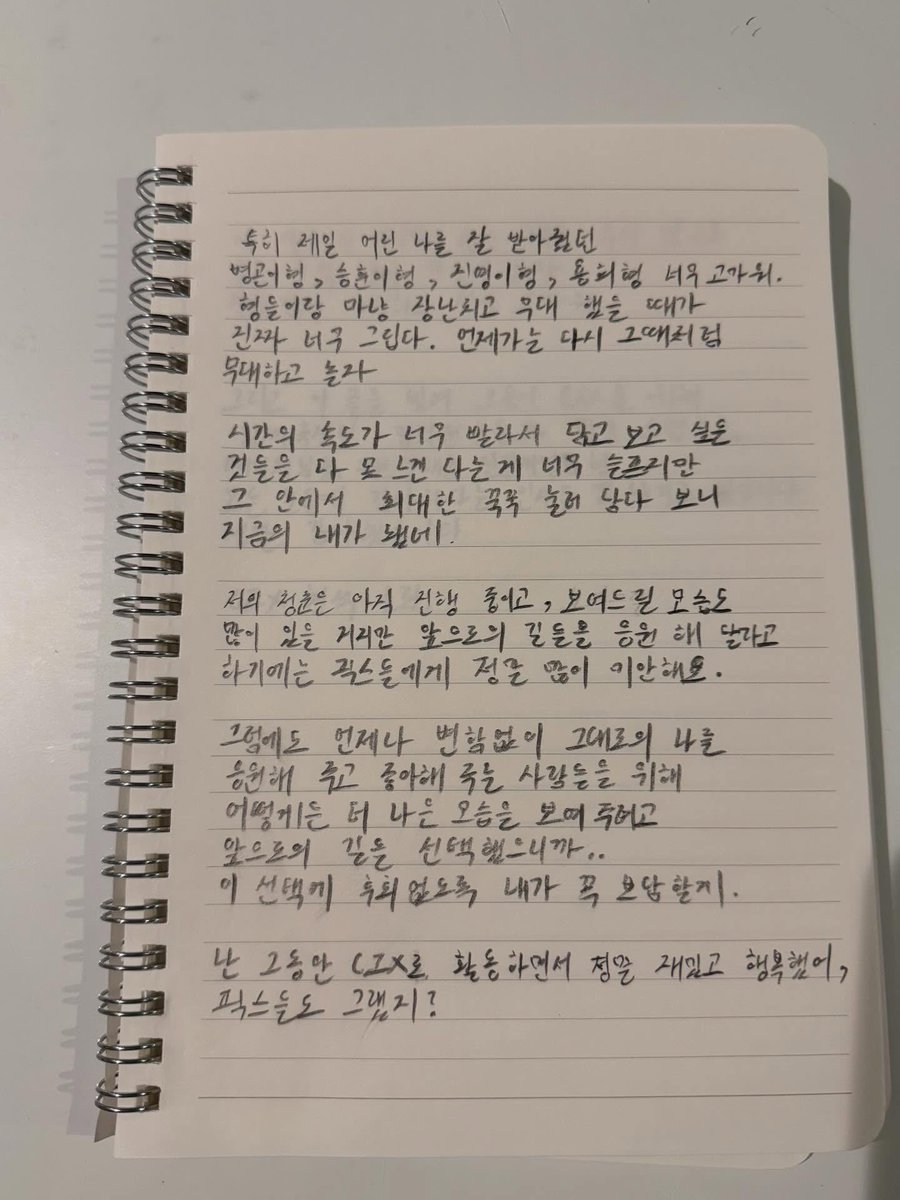 특히 제일 어린 나를 잘 받아줬던
병곤이형, 승훈이형, 진영이형, 용희형 너무 고마워.
형들이랑 마냥 장난치고 무대 했을 때가
진짜 너무 그립다. 언젠가는 다시 그때처럼
무대하고 놀자
시간의 속도가 너무 빨라서 담고 보고 싶은
것들을 다 못 느낀 다는 게 너무 슬프지만
그 안에서 최대한 꾹꾹 눌러 담다 보니
지금의 내가 됐네.
저의 청춘은 아직 진행 중이고, 보여드릴 모습도
많이 있을 거지만 앞으로의 길들을 응원 해 달라고
하기에는 픽스들에게 정말 많이 미안해요.
그럼에도 언제나 변함없이 그대로의 나를
응원해 주고 좋아해 주는 사람들을 위해
어떻게든 더 나은 모습을 보여 주려고
앞으로의 길을 선택했으니까..
이 선택에 후회 없도록 내가 꼭 보답할게.
난 그동안 CIX로 활동하면서 정말 재밌고 행복했어,
픽스들도 그랬지?